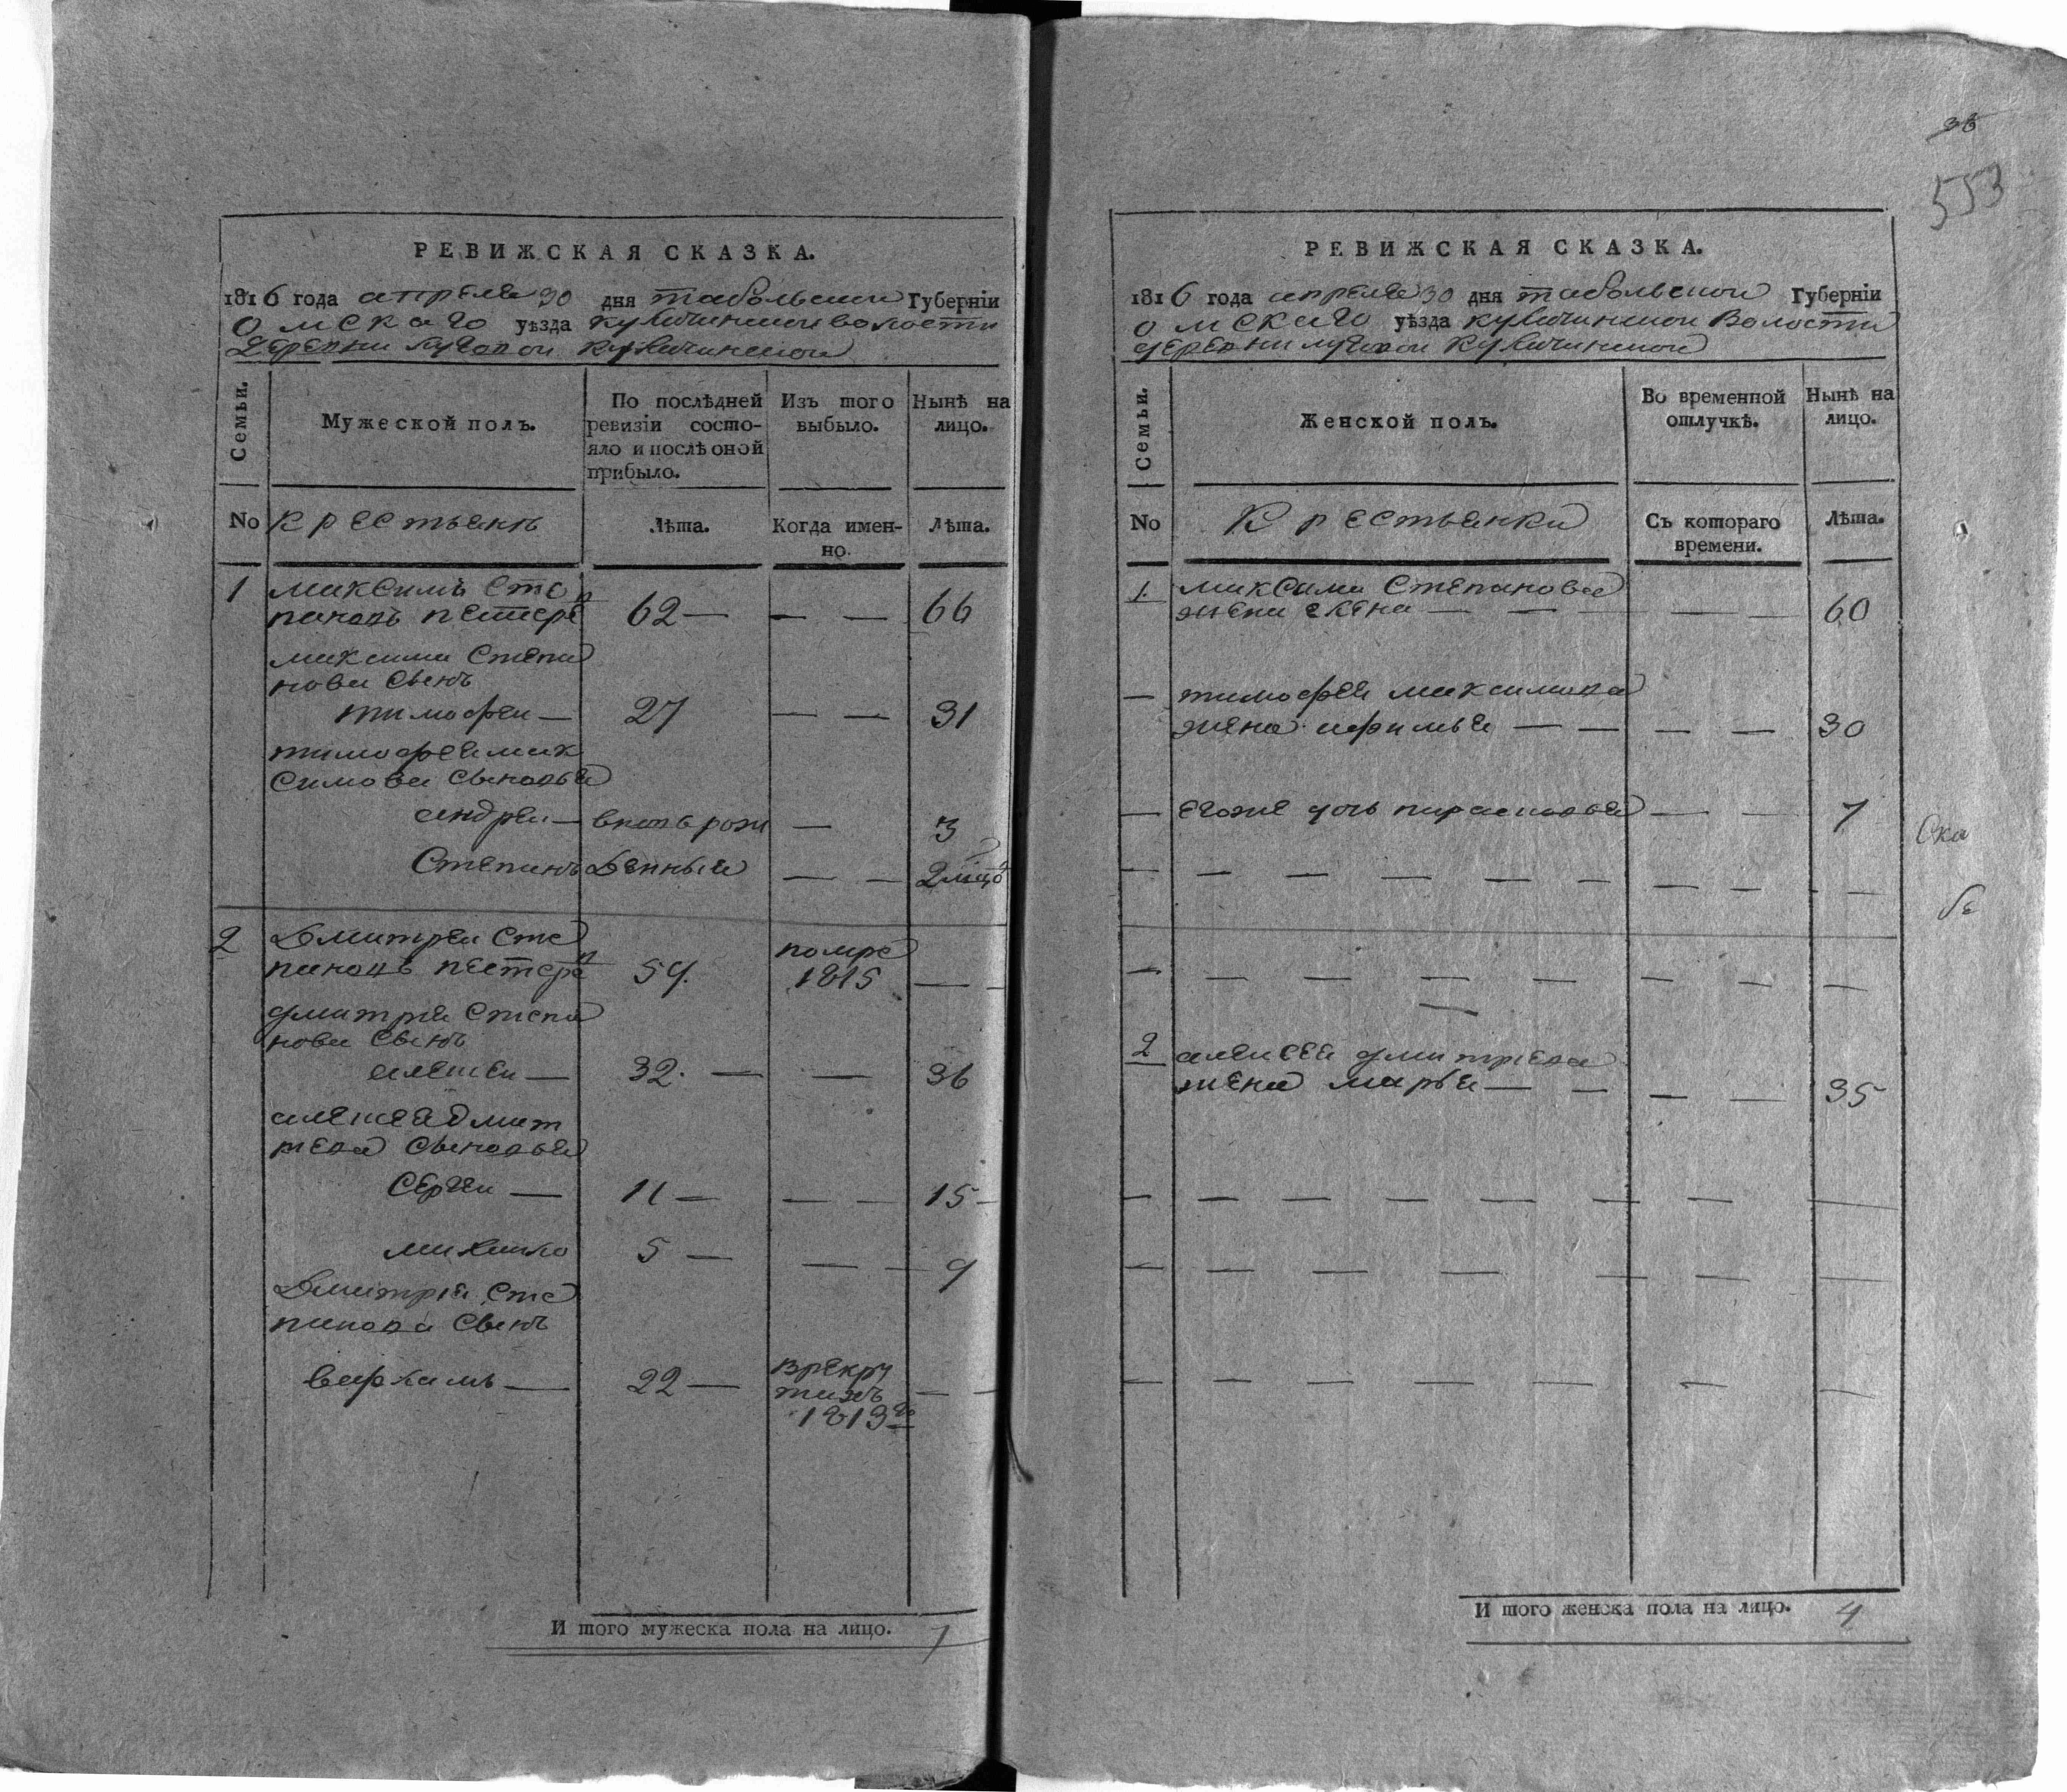 35
553
РЕВИЖСКАЯ СКАЗКА.
1816 года апреля 30 дня тобольской Губерніи
Омскаго уѣзда куличинской волости
Деревни луговой куличинской
Семьи.
Мужеской полъ.
По послѣдней
ревизіи состо-
яло и послѣ оной
прибыло.
Изъ того
выбыло.
Нынѣ на
лицо.
No крестьянъ
Лѣта.
Когда имен-
но.
Лѣта.
1 максимъ сте
пановъ пестере 62 — — — 66
максима степа
нова сынъ
тимофеи — 27 — — 31
тимофея мак
симова сыновья
андреи — вновь рож — 3
Степанъ денныя — —
2 Дмитреи сте
пановъ пестере
помре
1815 — —
дмитрия степа
нова сынъ
алексеи — 32. — — 36
алексея дмит
риева сыновья
Сергеи — 11 — — — 15 —
михаило 5 — — — 9
Дмитрия сте
панова сынъ
варламъ — 22 —
врекру
тахъ
1813го
— —
И того мужеска пола на лицо. 7
РЕВИЖСКАЯ СКАЗКА.
1816 года апреля 30 дня тобольской Губерніи
Омскаго уѣзда куличинской Волости
деревни луговой куличинской
Семьи.
Женской полъ.
Во временной
отлучкѣ.
Нынѣ на
лицо.
No
Крестьянки
Съ котораго
времени.
Лѣта.
1. максима Степанова
жена — — — — 60
— тимофея максимова
жена афимья — — — — 30
— егоже дочь парасковья — — 7
2 алексея дмитрева
жена марья — — — — 35
И того женска пола на лицо. 4
Ска
бе